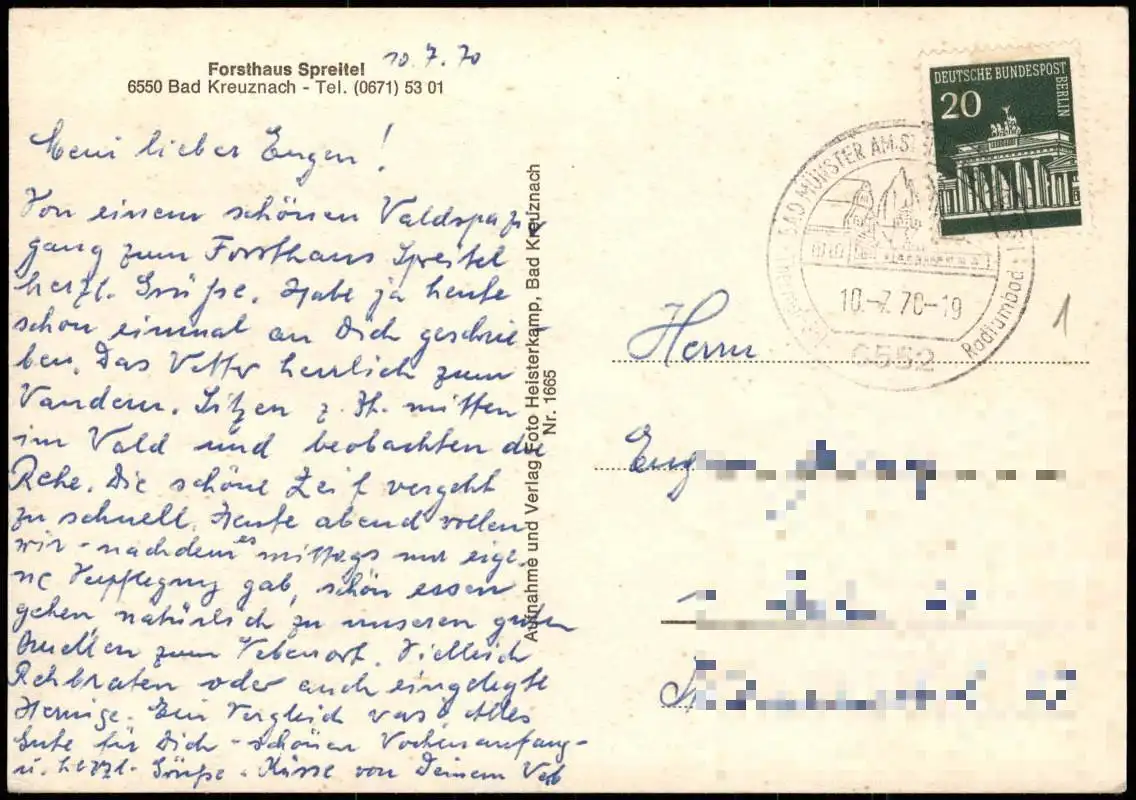 Forsthaus Spreitel
10.7.70
6550 Bad Kreuznach - Tel. (0671) 53 01
Mein lieber Eugen!
Von einem schönen Waldspazier-
gang zum Forsthaus Spreitel
herzl. Grüße. Habe ja heute
schon einmal an Dich geschrie-
ben. Das Wetter herrlich zum
Wandern. Sitzen z. Zt. mitten
im Wald und beobachten die
Rehe. Die schöne Zeit vergeht
zu schnell. Heute abend wollen
wir - nachdem es mittags nur eige-
ne Verpflegung gab, schön essen
gehen, natürlich zu unseren guten
Quellen zum Nebenort. Vielleich
Rehbraten oder auch eingelegte
Heringe. Ein Vergleich was. Alles
Gute für Dich - schönen Wochenanfang -
u. herzl. Grüße. Küsse von Deinem
Aufnahme und Verlag Foto Heisterkamp, Bad Kreuznach
Nr. 1665
DEUTSCHE BUNDESPOST
BERLIN
20
BAD MÜNSTER AM ST
10.-7.70-19
6552
Radiumbad
1
Herrn
Eug